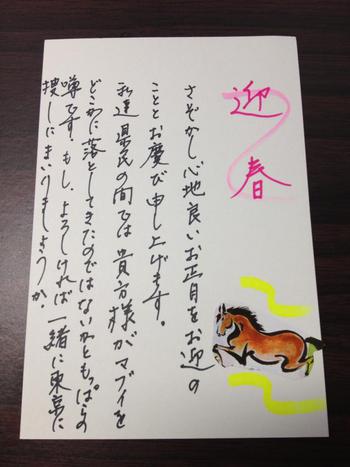 迎春
さぞかし心地良いお正月をお迎の
こととお慶び申し上げます。
私達県民の間では貴方様がマブイを
どこかに落としてきたのではないかともっぱらの
噂です。もし、よろしければ一緒に東京に
捜しにまいりましょうか。